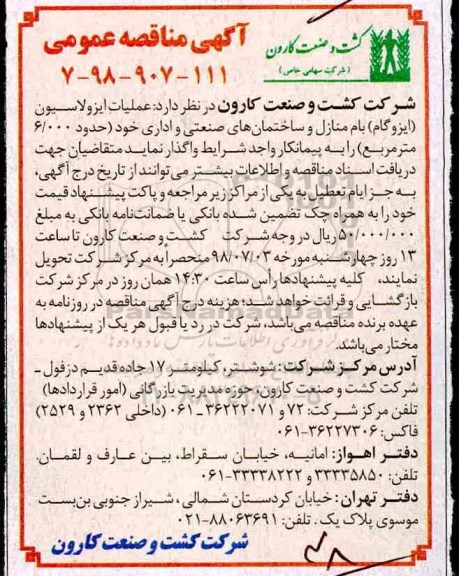 آگهی مناقصه عمومی
۷-۹۸-۹۰۷-۱۱۱
کشت و صنعت کارون
(شرکت سهامی خاص)
شرکت کشت و صنعت کارون در نظر دارد: عملیات ایزولاسیون
(ایزوگام) بام منازل و ساختمان‌های صنعتی و اداری خود (حدود ۶/۰۰۰
مترمربع) را به پیمانکار واجد شرایط واگذار نماید متقاضیان جهت
دریافت اسناد مناقصه و اطلاعات بیشتر می‌توانند از تاریخ درج آگهی،
به جز ایام تعطیل به یکی از مراکز زیر مراجعه و پاکت پیشنهاد قیمت
خود را به همراه چک تضمین شده بانکی یا ضمانت‌نامه بانکی به مبلغ
۵۰/۰۰۰/۰۰۰ ریال در وجه شرکت کشت و صنعت کارون تا ساعت
۱۳ روز چهارشنبه مورخه ۹۸/۰۷/۰۳ منحصراً به مرکز شرکت تحویل
نمایند، کلیه پیشنهادها رأس ساعت ۱۴:۳۰ همان روز در مرکز شرکت
بازگشایی و قرائت خواهد شد؛ هزینه درج آگهی مناقصه در روزنامه به
عهده برنده مناقصه می‌باشد، شرکت در رد یا قبول هر یک از پیشنهادها
مختار می‌باشد.
آدرس مرکز شرکت: شوشتر، کیلومتر ۱۷ جاده قدیم دزفول -
شرکت کشت و صنعت کارون، حوزه مدیریت بازرگانی (امور قراردادها)
تلفن مرکز شرکت: ۷۲ و ۳۶۲۲۲۰۷۱-۰۶۱ (داخلی ۲۳۶۲ و ۲۵۲۹)
فاکس: ۳۶۲۲۷۳۰۶-۰۶۱
دفتر اهواز: امانیه، خیابان سقراط، بین عارف و لقمان.
تلفن: ۳۳۳۳۵۸۵۰ و ۳۳۳۳۸۲۲۲-۰۶۱
دفتر تهران: خیابان کردستان شمالی، شیراز جنوبی بن‌بست
موسوی پلاک یک. تلفن: ۸۸۰۶۳۶۹۱-۰۲۱
شرکت کشت و صنعت کارون